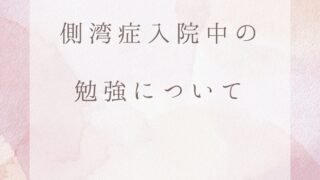 側湾症入院中の
勉強について